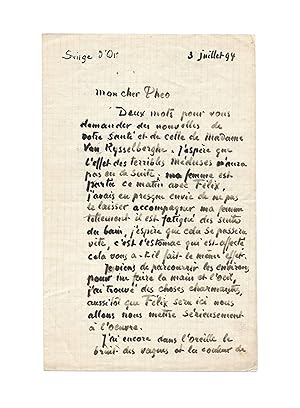 Singe d'Or 3 juillet 94
Mon cher Theo
Deux mots pour vous
demander des nouvelles de
votre santé et de celle de Madame
Van Rysselberghe. j'espère que
l'effet des terribles méduses n'aura
pas eu de suite; ma femme est
partie ce matin avec Félix,
j'avais en presque envie de ne pas
le laisser accompagner ma femme
tellement il est fatigué des suites
du bain, j'espère que cela se passera
vite, c'est l'estomac qui est affecté
cela vous a-t-il fait le même effet.
Je viens de parcourir les environs
pour me faire la main et l'oeil,
j'ai trouvé des choses charmantes,
aussitôt que Félix sera ici nous
allons nous mettre sérieusement
à l'oeuvre.
J'ai encore dans l'oreille le
bruit des vagues et la couleur de